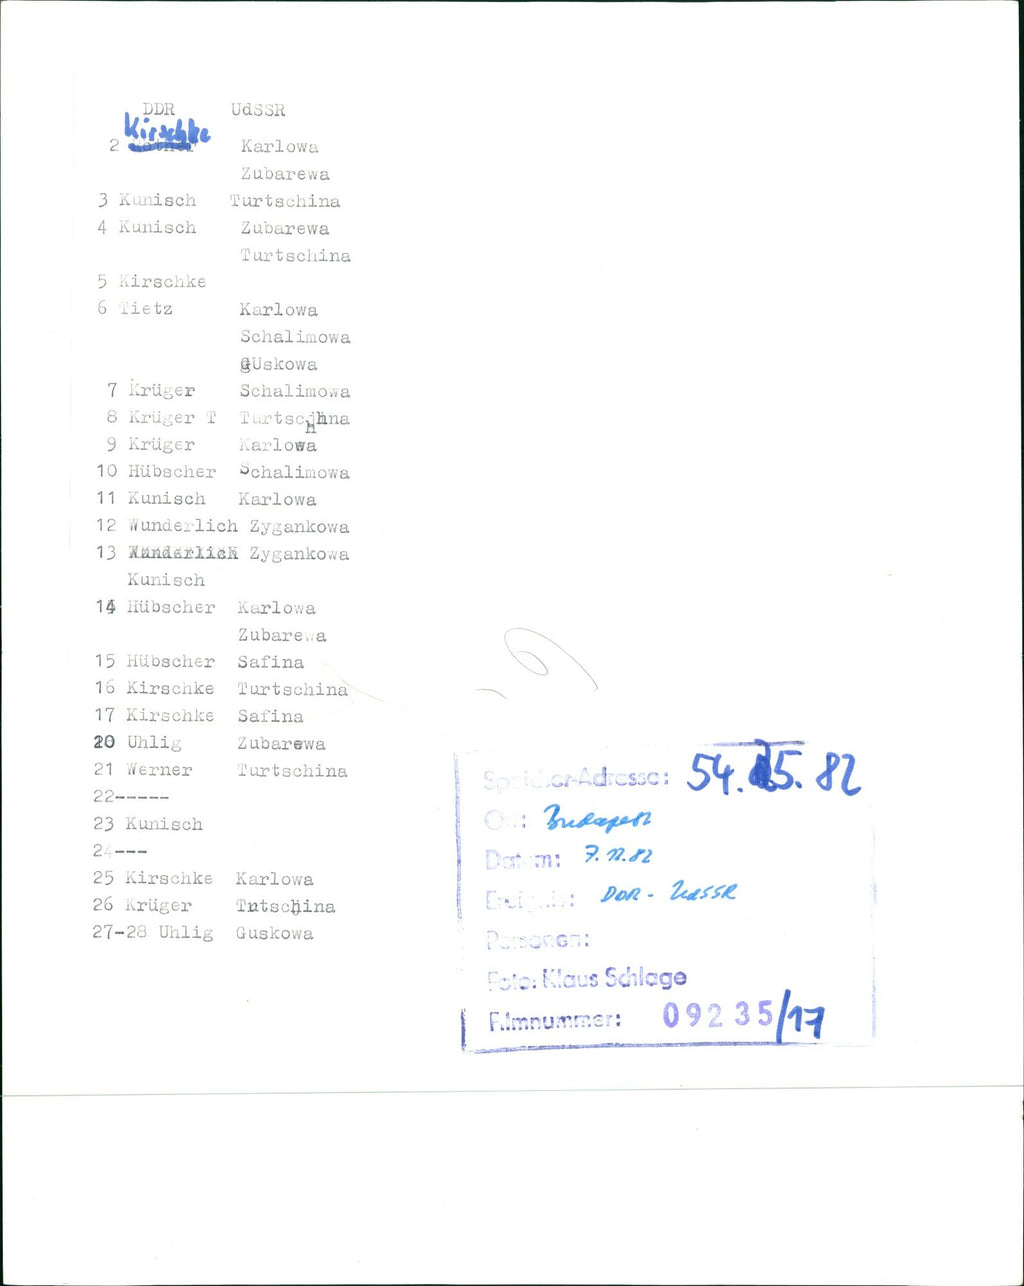 DDR UdSSR
Kirschke
2 Karlowa
Zubarewa
3 Kunisch Turtschina
4 Kunisch Zubarewa
Turtschina
5 Kirschke
6 Tietz Karlowa
Schalimowa
GUskowa
7 Krüger Schalimowa
8 Krüger T Turtschina
9 Krüger Karlowa
10 Hübscher Schalimowa
11 Kunisch Karlowa
12 Wunderlich Zygankowa
13 Wunderlich Zygankowa
Kunisch
14 Hübscher Karlowa
Zubarewa
15 Hübscher Safina
16 Kirschke Turtschina
17 Kirschke Safina
20 Uhlig Zubarewa
21 Werner Turtschina
22-----
23 Kunisch
24---
25 Kirschke Karlowa
26 Krüger Tutschina
27-28 Uhlig Guskowa
Speicher-Adresse: 54. 15. 82
Ort: Budapest
Datum: 7.12.82
Ereignis: DDR - UdSSR
Personen:
Foto: Klaus Schlage
Filmnummer: 09235/17